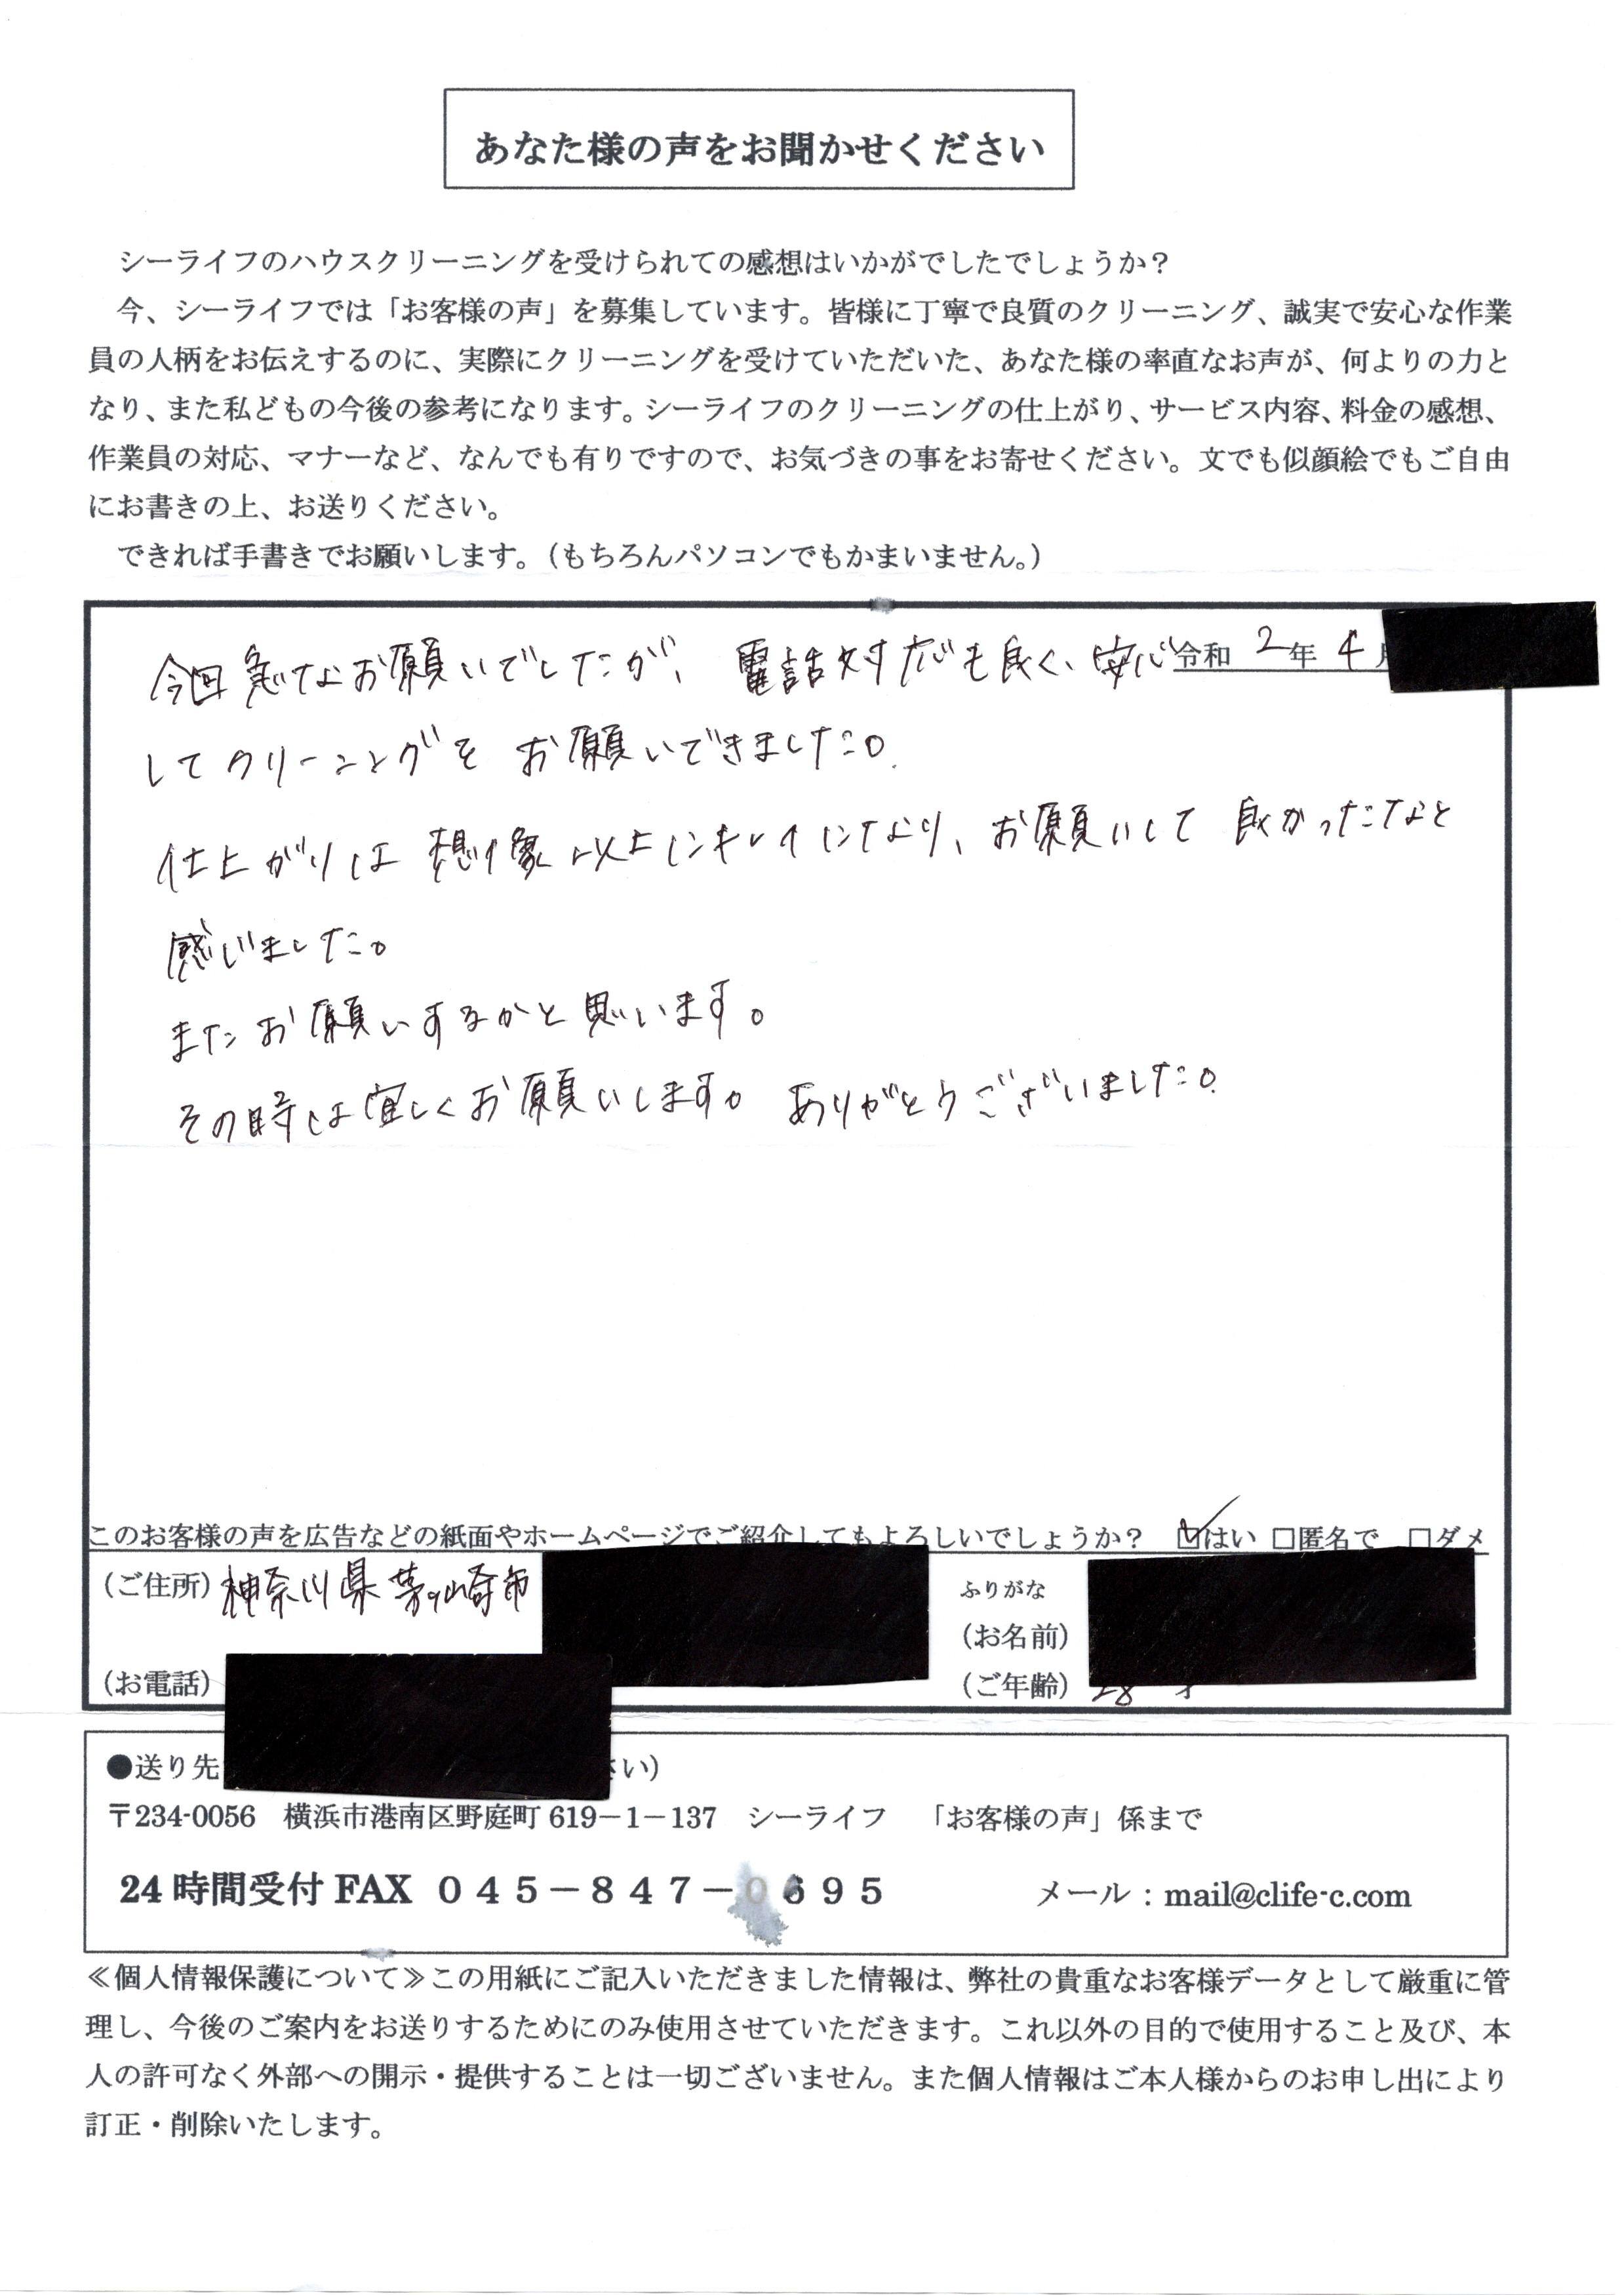 あなた様の声をお聞かせください
シーライフのハウスクリーニングを受けられての感想はいかがでしたでしょうか？
今、シーライフでは「お客様の声」を募集しています。皆様に丁寧で良質のクリーニング、誠実で安心な作業
員の人柄をお伝えするのに、実際にクリーニングを受けていただいた、あなた様の率直なお声が、何よりの力と
なり、また私どもの今後の参考になります。シーライフのクリーニングの仕上がり、サービス内容、料金の感想、
作業員の対応、マナーなど、なんでも有りですので、お気づきの事をお寄せください。文でも似顔絵でもご自由
にお書きの上、お送りください。
できれば手書きでお願いします。（もちろんパソコンでもかまいません。）
令和 2年 4月
今回急なお願いでしたが、電話対応も良く、安心
してクリーニングをお願いできました。
仕上がりは想像以上にキレイになり、お願いして良かったなと
感じました。
またお願いするかと思います。
その時は宜しくお願いします。ありがとうございました。
このお客様の声を広告などの紙面やホームページでご紹介してもよろしいでしょうか？ ☑はい □匿名で □ダメ
（ご住所）神奈川県茅ヶ崎市
ふりがな
（お名前）
（お電話）
（ご年齢）28才
●送り先 さい）
〒234-0056 横浜市港南区野庭町619－1－137 シーライフ 「お客様の声」係まで
24時間受付FAX ０４５－８４７－０６９５ メール：mail@clife-c.com
≪個人情報保護について≫この用紙にご記入いただきました情報は、弊社の貴重なお客様データとして厳重に管
理し、今後のご案内をお送りするためにのみ使用させていただきます。これ以外の目的で使用すること及び、本
人の許可なく外部への開示・提供することは一切ございません。また個人情報はご本人様からのお申し出により
訂正・削除いたします。